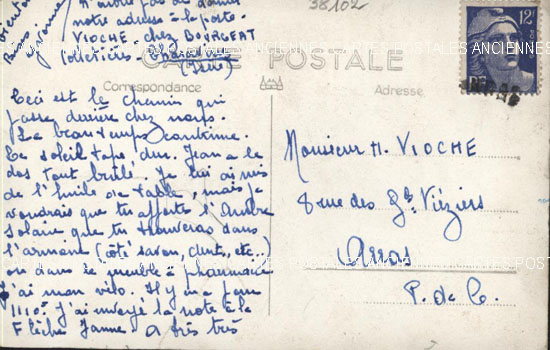 N'oublie pas de donner
notre adresse à la poste.
VIOCHE chez BOURGEAT
Cotteries
(Isère)
38102
12F
RF
CARTE POSTALE
Correspondance
Adresse
Ceci est le chemin qui
passe derrière chez nous.
Le beau temps continue.
Le soleil tape dur. Jean a le
dos tout brûlé. Je lui ai mis
de l'huile de table, mais je
voudrais que tu apportes l'Ambre
Solaire que tu trouveras dans
l'armoire (côté savon, dents, etc...)
ou dans le meuble à pharmacie
J'ai mon vélo. Il y en a pour
1110F. J'ai envoyé la note à la
Flèche Jaune. a très très
Monsieur H. VIOCHE
8 rue des Gds Viéziers
Arras
P. de C.
CARTES POSTALES ANCIENNES